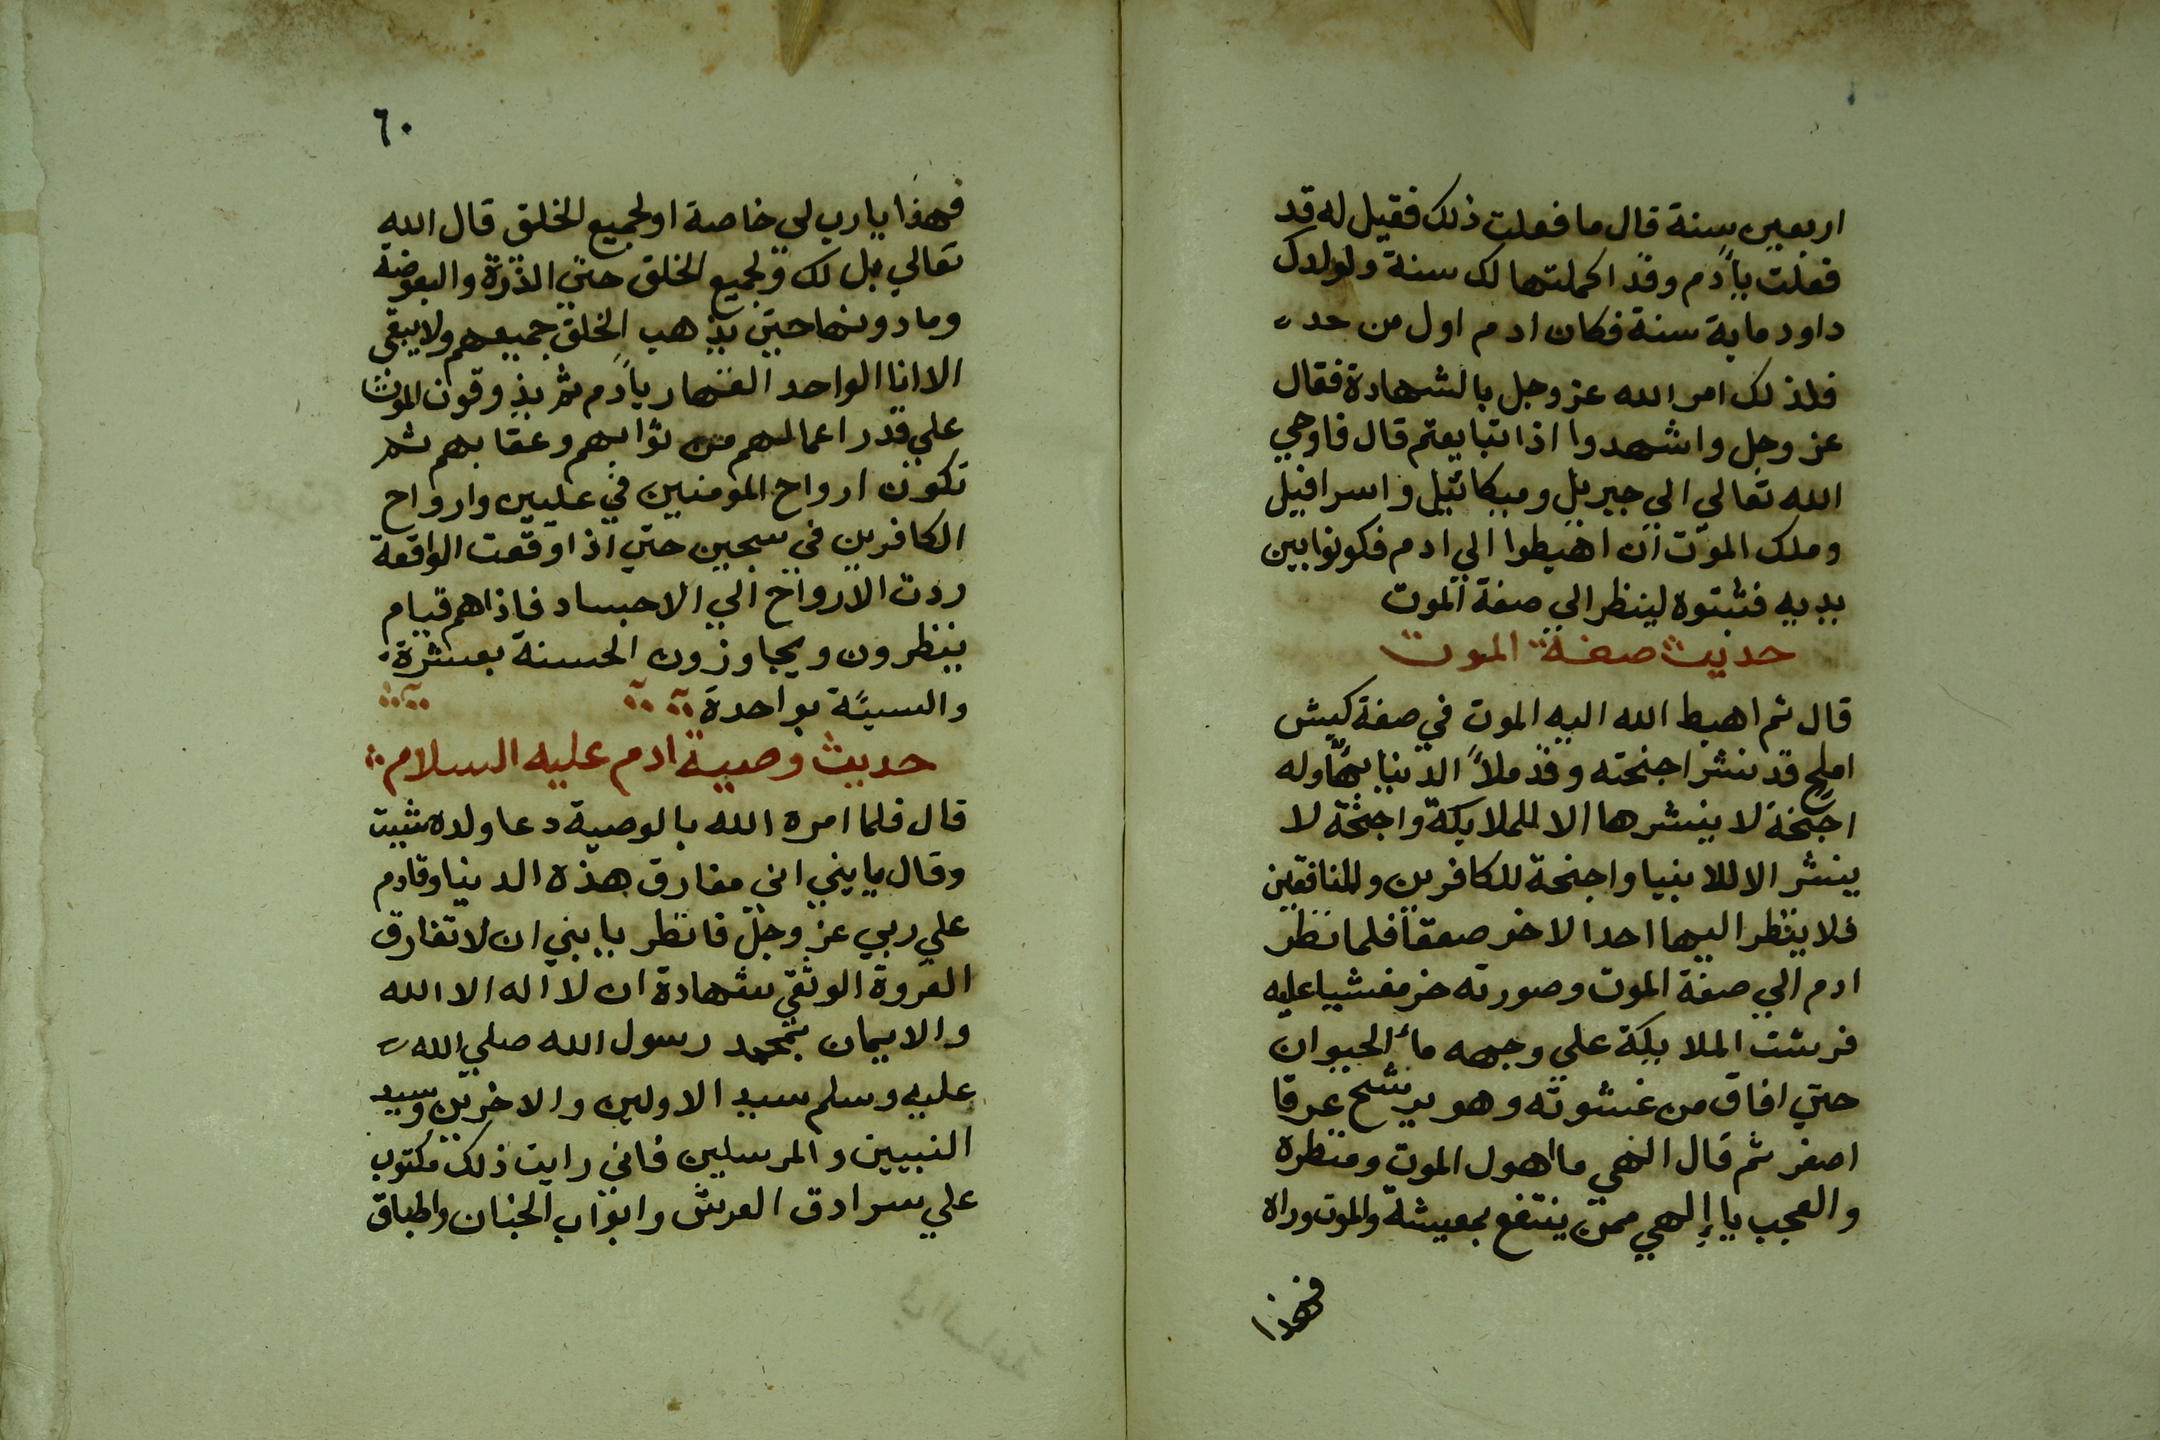 اربعين سنة قال ما فعلت ذلك فقيل له قد
فعلت يآدم وقد اكملتها لك سنة ولولدك
داود ماية سنة فكان ادم اول من جحد
فلذلك امر الله عز وجل بالشهادة فقال
عز وجل واشهدوا اذا تبايعتم قال فاوحي
الله تعالي الي جبريل وميكائيل واسرافيل
وملك الموت ان اهبطوا الي ادم فكونوا بين
يديه فثبتوه لينظر الي صفة الموت
حديث صفة الموت
قال ثم اهبط الله اليه الموت في صفة كبش
املح قد نشر اجنحته وقد ملأ الدنيا بها وله
اجنحة لا ينشرها الا للملايكة واجنحة لا
ينشر الا للانبيا واجنحة للكافرين وللمنافقين
فلا ينظر اليها احد الا خر صعقا فلما نظر
ادم الي صفة الموت وصورته خر مغشيا عليه
فرشت الملايكة علي وجهه مأ الحيوان
حتي افاق من غشوته وهو يرشح عرقا
اصفر ثم قال الهي ما اهول الموت ومنظره
والعجب يا إلهي ممن ينتفع بمعيشة والموت وراه
فهذا
٦٠
فهذا يا رب لي خاصة او لجميع الخلق قال الله
تعالي بل لك ولجميع الخلق حتي الذرة والبعوضة
وما دونها حتي يذهب الخلق جميعهم ولا يبقي
الا انا الواحد القهار يآدم ثم يذوقون الموت
علي قدر اعمالهم من ثوابهم وعقابهم ثم
تكون ارواح المومنين في عليين وارواح
الكافرين في سجين حتي اذا وقعت الواقعة
ردت الارواح الي الاجساد فاذا هم قيام
ينظرون ويجاوزون الحسنة بعشرة
والسيئة بواحدة
حديث وصية ادم عليه السلام
قال فلما امره الله بالوصية دعا ولده شيث
وقال يا بني اني مفارق هذه الدنيا وقادم
علي ربي عز وجل فانظر يا بني ان لا تفارق
العروة الوثقي شهادة ان لا اله الا الله
والايمان بمحمد رسول الله صلي الله
عليه وسلم سيد الاولين والاخرين وسيد
النبيين والمرسلين فاني رايت ذلك مكتوب
علي سرادق العرش وابواب الجنان واطباق